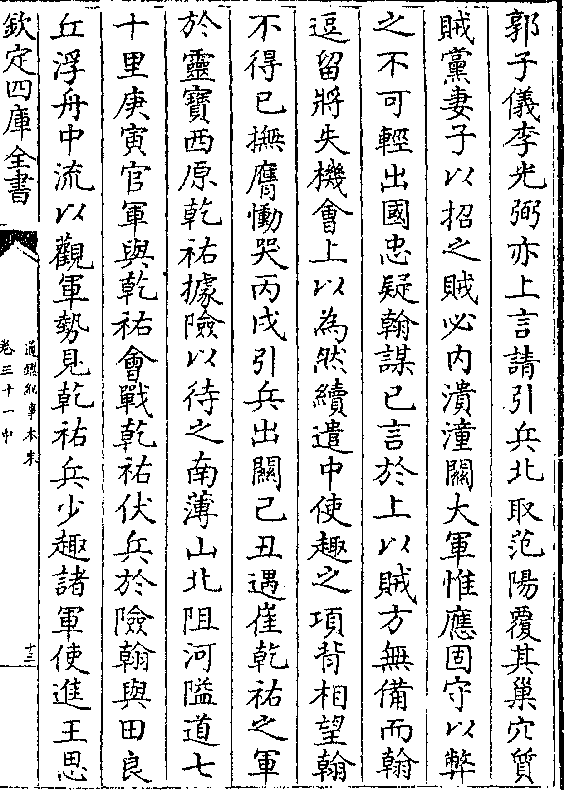 郭子儀李光弼亦上言請引兵北取范陽覆其巢穴質
賊黨妻子以招之賊必内潰潼關大軍惟應固守以弊
之不可輕出國忠疑翰謀已言於上以賊方無備而翰
逗留將失機會上以為然續遣中使趣之項背相望翰
不得已撫膺慟哭丙戌引兵出關己丑遇崔乾祐之軍
於靈寶西原乾祐據險以待之南薄山北阻河隘道七
十里庚寅官軍與乾祐會戰乾祐伏兵於險翰與田良
丘浮舟中流以觀軍勢見乾祐兵少趣諸軍使進王思
欽定四庫全書
通鑑紀事本末
卷三十一中
十三